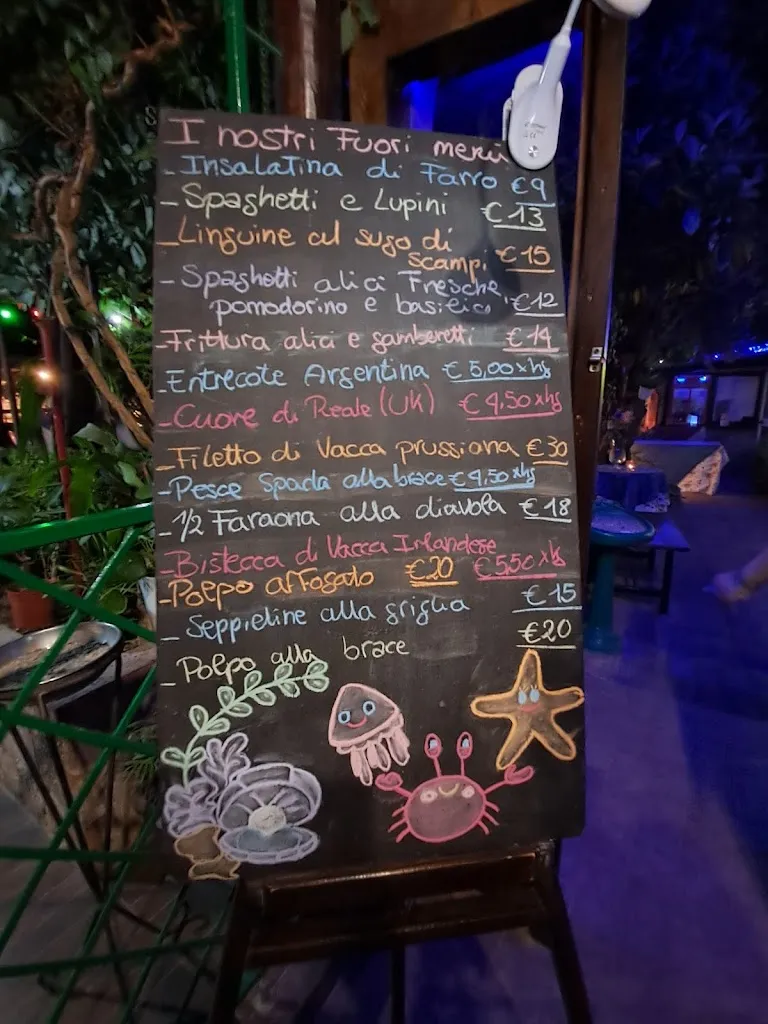 I nostri Fuori menù
- Insalatina di Farro €9
- Spaghetti e Lupini €13
- Linguine al sugo di
scampi €15
- Spaghetti alici Fresche,
pomodorino e basilico €12
- Frittura alici e gamberetti €14
- Entrecote Argentina €5,00xhg
- Cuore di Reale (UK) €4,50xhg
- Filetto di Vacca prussiana €30
- Pesce Spada alla brace €4,50xhg
- 1/2 Faraona alla diavola €18
- Bistecca di Vacca Irlandese €5,50xhg
- Polpo affogato €20
- Seppieline alla griglia €15
- Polpo alla brace €20